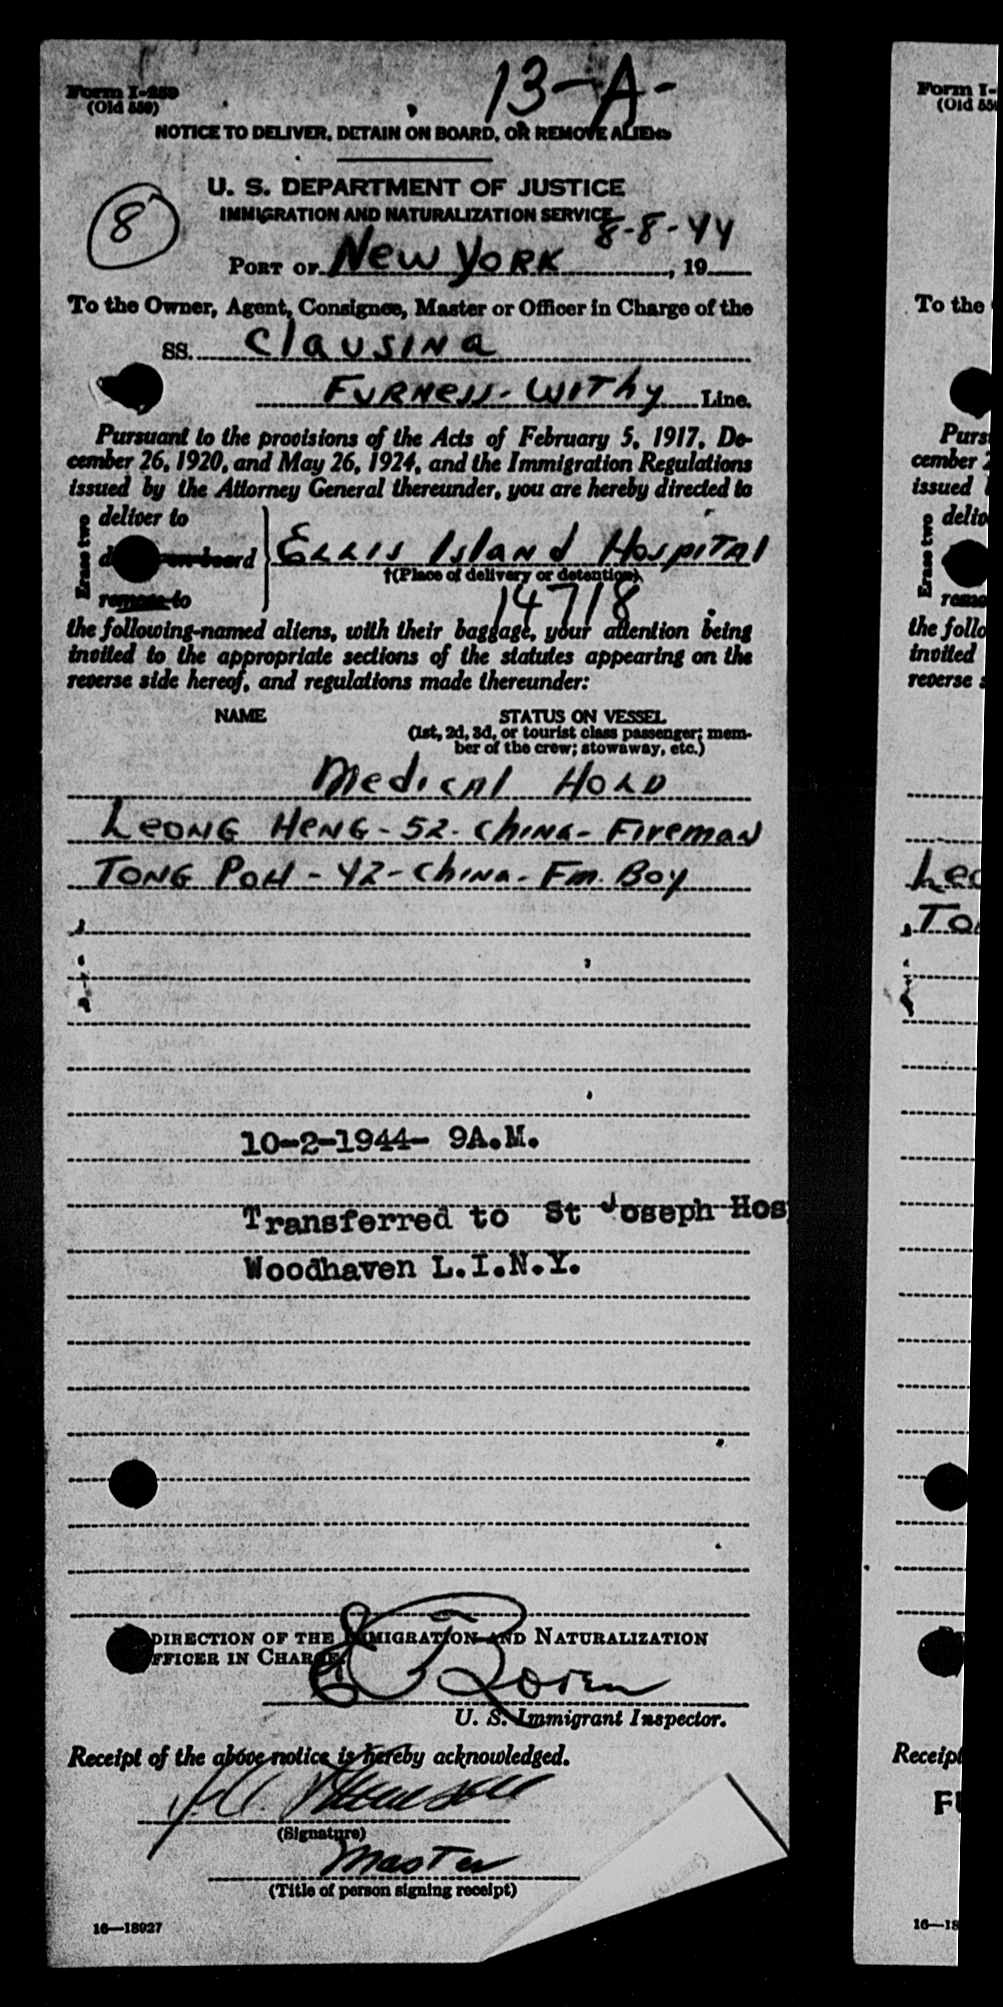 Form I-259
(Old 559)
13-A-
NOTICE TO DELIVER, DETAIN ON BOARD, OR REMOVE ALIENS
U. S. DEPARTMENT OF JUSTICE
IMMIGRATION AND NATURALIZATION SERVICE
8
8-8-44
PORT OF New York, 19
To the Owner, Agent, Consignee, Master or Officer in Charge of the
SS. Clausina
Furness-Withy Line.
Pursuant to the provisions of the Acts of February 5, 1917, De-
cember 26, 1920, and May 26, 1924, and the Immigration Regulations
issued by the Attorney General thereunder, you are hereby directed to
Erase two
deliver to
on board
remove to
Ellis Island Hospital
†(Place of delivery or detention),
14718
the following-named aliens, with their baggage, your attention being
invited to the appropriate sections of the statutes appearing on the
reverse side hereof, and regulations made thereunder:
NAME STATUS ON VESSEL
(1st, 2d, 3d, or tourist class passenger; mem-
ber of the crew; stowaway, etc.)
Medical Hold
Leong Heng-52-China-Fireman
Tong Poh-42-China-Fm. Boy
10-2-1944- 9A.M.
Transferred to St Joseph Hos
Woodhaven L.I.N.Y.
DIRECTION OF THE IMMIGRATION AND NATURALIZATION
OFFICER IN CHARGE.
U. S. Immigrant Inspector.
Receipt of the above notice is hereby acknowledged.
(Signature)
Master
(Title of person signing receipt)
16—18927
Form I-
(Old 55
To the
Purs
cember 2
issued
Erase two
deliv
remo
the follo
invited
reverse s
Leo
To
Receip
F
16—18